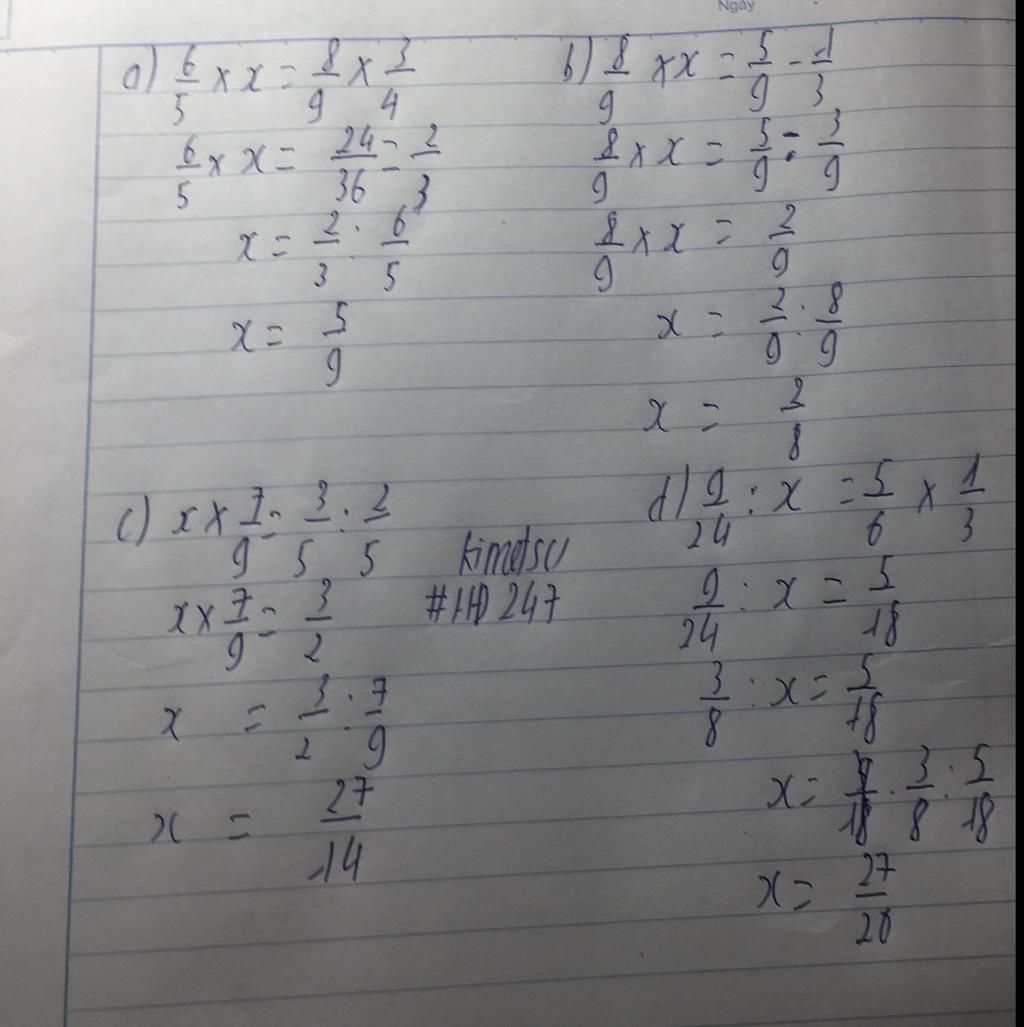 Ngày
a) 6/5 × x = 8/9 × 3/4
6/5 × x = 24/36 = 2/3
x = 2/3 : 6/5
x = 5/9
b) 8/9 × x = 5/9 - 1/3
8/9 × x = 5/9 - 3/9
8/9 × x = 2/9
x = 2/9 : 8/9
x = 2/8
c) x × 7/9 = 3/5 : 2/5
x × 7/9 = 3/2
x = 3/2 : 7/9
x = 27/14
kimetsu
#HĐ 247
d) 9/24 : x = 5/6 × 1/3
9/24 : x = 5/18
3/8 : x = 5/18
x = 3/8 : 5/18
x = 27/20